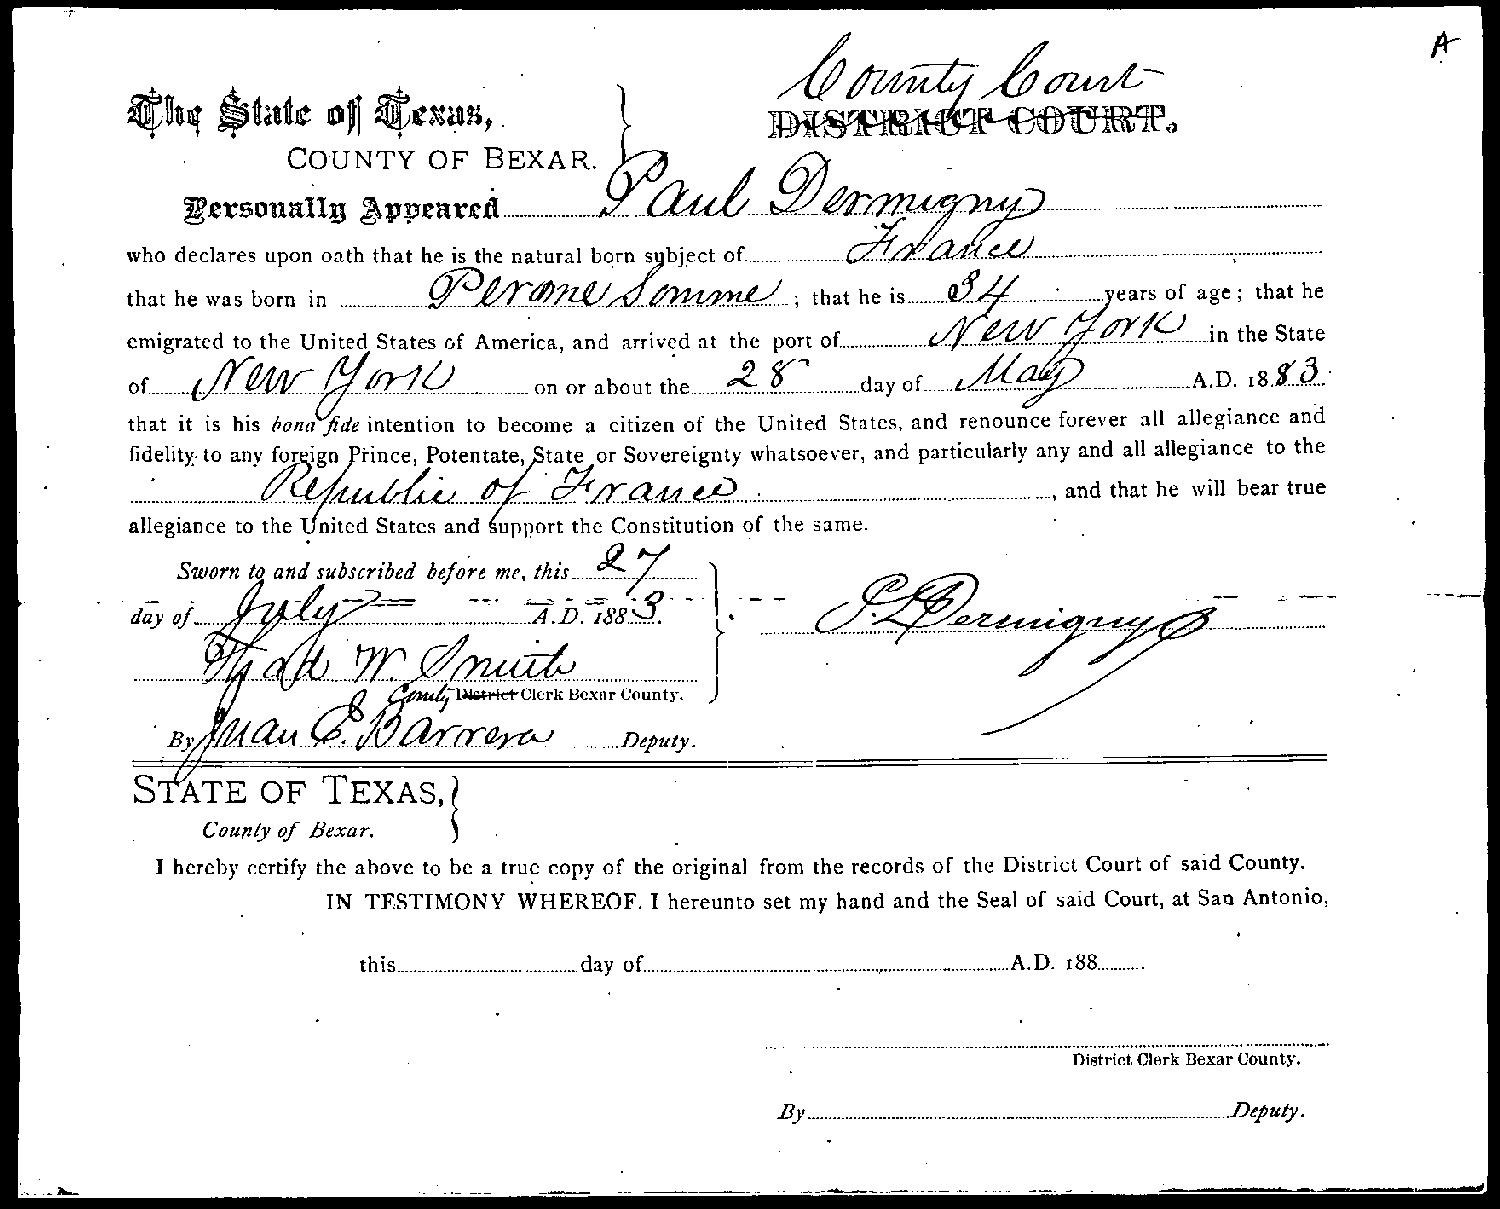 A
County Court
The State of Texas, DISTRICT COURT.
COUNTY OF BEXAR.
Personally Appeared Paul Dermigny
who declares upon oath that he is the natural born subject of France
that he was born in Perone Somme ; that he is 34 years of age; that he
emigrated to the United States of America, and arrived at the port of New York in the State
of New York on or about the 28 day of May A.D. 1883.
that it is his bona fide intention to become a citizen of the United States, and renounce forever all allegiance and
fidelity to any foreign Prince, Potentate, State or Sovereignty whatsoever, and particularly any and all allegiance to the
Republic of France , and that he will bear true
allegiance to the United States and support the Constitution of the same.
Sworn to and subscribed before me, this 27
day of July A.D. 1883.
P. L. Dermigny
Thad W. Smith
County District Clerk Bexar County.
By Juan E. Barrera Deputy.
STATE OF TEXAS,
County of Bexar.
I hereby certify the above to be a true copy of the original from the records of the District Court of said County.
IN TESTIMONY WHEREOF, I hereunto set my hand and the Seal of said Court, at San Antonio,
this day of A.D. 188
District Clerk Bexar County.
By Deputy.